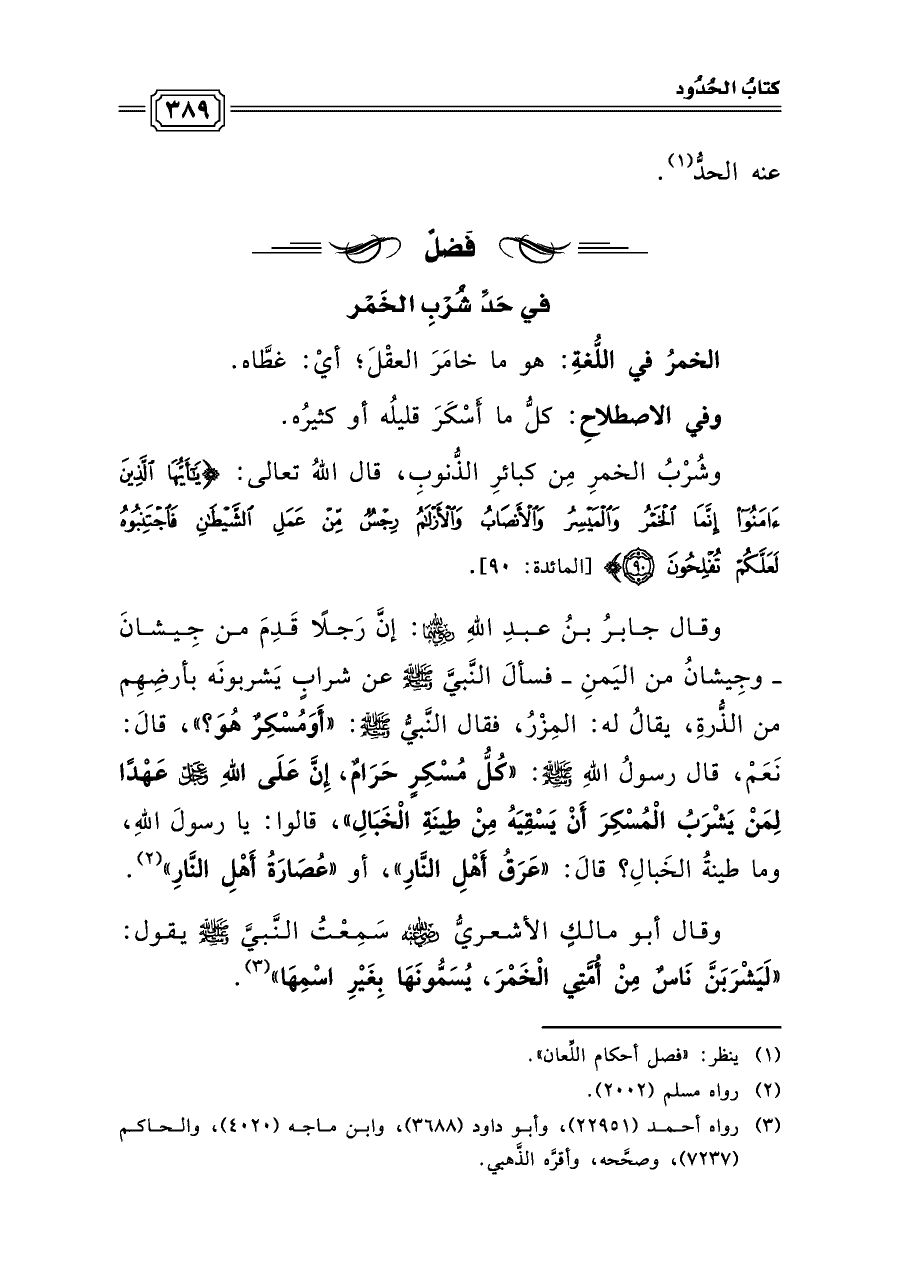 كتابُ الحُدُود
٣٨٩
عنه الحدُّ(١).
فَصْلٌ
في حَدِّ شُرْبِ الخَمْر
الخمرُ في اللُّغةِ: هو ما خامَرَ العقْلَ؛ أيْ: غطَّاه.
وفي الاصطلاحِ: كلُّ ما أَسْكَرَ قليلُه أو كثيرُه.
وشُرْبُ الخمرِ مِن كبائرِ الذُّنوبِ، قال اللهُ تعالى: ﴿يَٰٓأَيُّهَا ٱلَّذِينَ
ءَامَنُوٓاْ إِنَّمَا ٱلۡخَمۡرُ وَٱلۡمَيۡسِرُ وَٱلۡأَنصَابُ وَٱلۡأَزۡلَٰمُ رِجۡسٞ مِّنۡ عَمَلِ ٱلشَّيۡطَٰنِ فَٱجۡتَنِبُوهُ
لَعَلَّكُمۡ تُفۡلِحُونَ ٩٠﴾ [المائدة: ٩٠].
وقال جابرُ بنُ عبدِ اللهِ رضي الله عنهما: إنَّ رَجلًا قَدِمَ من جِيشانَ
ـ وجِيشانُ من اليَمنِ ـ فسألَ النَّبيَّ ﷺ عن شرابٍ يَشربونَه بأرضِهِم
من الذُّرةِ، يقالُ له: المِزْرُ، فقال النَّبيُّ ﷺ: «أَوَمُسْكِرٌ هُوَ؟»، قالَ:
نَعَمْ، قال رسولُ اللهِ ﷺ: «كُلُّ مُسْكِرٍ حَرَامٌ، إِنَّ عَلَى اللهِ عز وجل عَهْدًا
لِمَنْ يَشْرَبُ الْمُسْكِرَ أَنْ يَسْقِيَهُ مِنْ طِينَةِ الْخَبَالِ»، قالوا: يا رسولَ اللهِ،
وما طينةُ الخَبالِ؟ قالَ: «عَرَقُ أَهْلِ النَّارِ»، أو «عُصَارَةُ أَهْلِ النَّارِ»(٢).
وقال أبو مالكٍ الأشعريُّ رضي الله عنه سَمِعْتُ النَّبيَّ ﷺ يقول:
«لَيَشْرَبَنَّ نَاسٌ مِنْ أُمَّتِي الْخَمْرَ، يُسَمُّونَهَا بِغَيْرِ اسْمِهَا»(٣).
(١) ينظر: «فصل أحكام اللِّعان».
(٢) رواه مسلم (٢٠٠٢).
(٣) رواه أحمد (٢٢٩٥١)، وأبو داود (٣٦٨٨)، وابن ماجه (٤٠٢٠)، والحاكم
(٧٢٣٧)، وصحَّحه، وأقرَّه الذَّهبي.